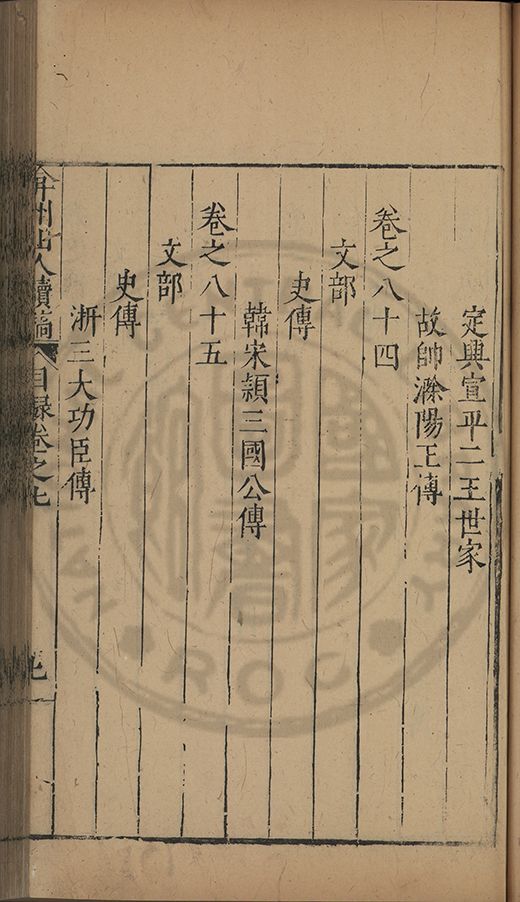 定興宣平二王世家
故帥滁陽王傳
卷之八十四
文部
史傳
韓宋潁三國公傳
卷之八十五
文部
史傳
浙三大功臣傳
弇州山人續稿 目録卷之七